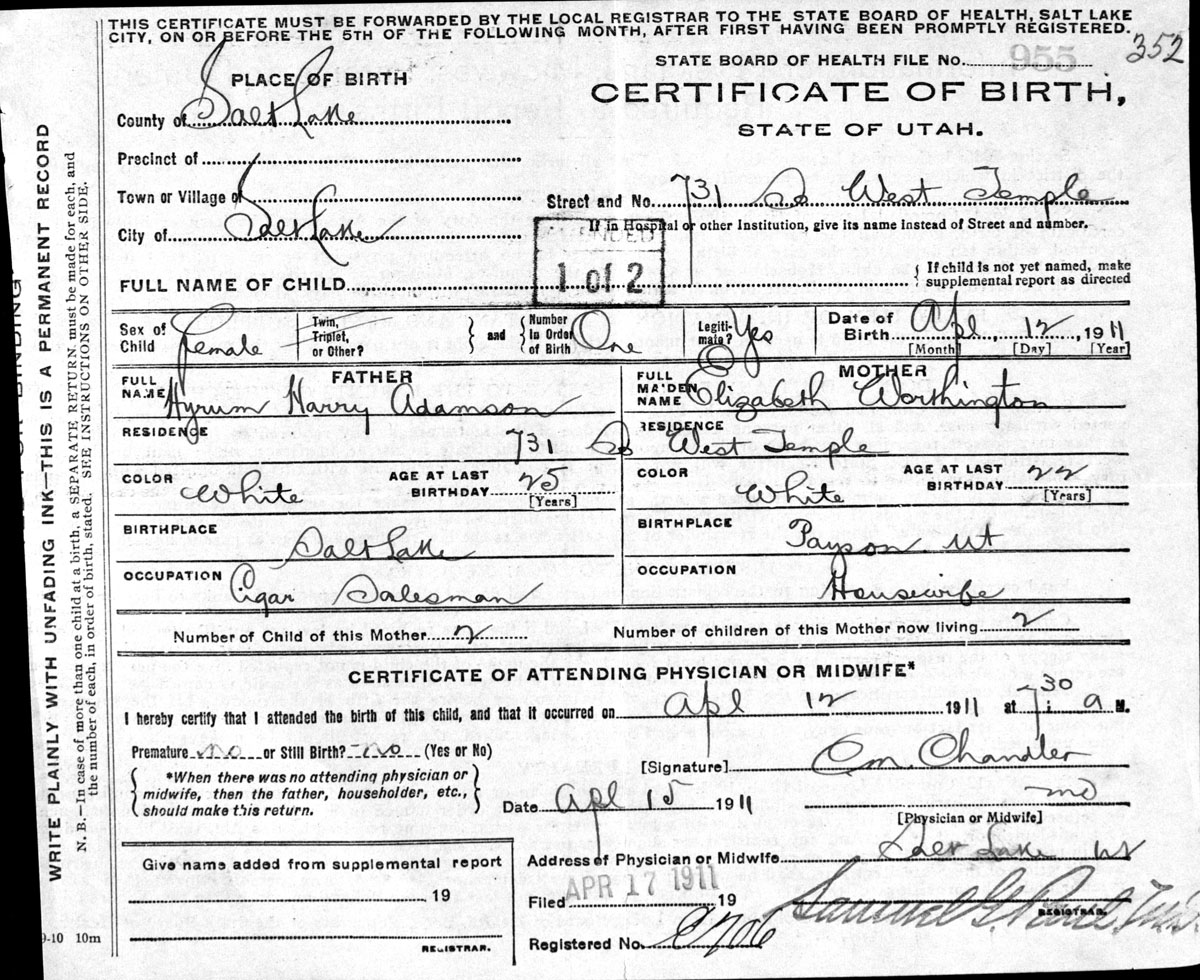 THIS CERTIFICATE MUST BE FORWARDED BY THE LOCAL REGISTRAR TO THE STATE BOARD OF HEALTH, SALT LAKE
CITY, ON OR BEFORE THE 5TH OF THE FOLLOWING MONTH, AFTER FIRST HAVING BEEN PROMPTLY REGISTERED.
352
STATE BOARD OF HEALTH FILE No. 955
PLACE OF BIRTH
CERTIFICATE OF BIRTH,
STATE OF UTAH.
County of Salt Lake
Precinct of
Town or Village of
Street and No. 731 So West Temple
City of Salt Lake
If in Hospital or other Institution, give its name instead of Street and number.
1 of 2
FULL NAME OF CHILD
If child is not yet named, make
supplemental report as directed
Sex of Child Female
Twin, Triplet, or Other?
and
Number in Order of Birth One
Legitimate? Yes
Date of Birth Apl 12 1911
[Month] [Day] [Year]
FATHER
FULL NAME Hyrum Harry Adamson
MOTHER
FULL MAIDEN NAME Elizabeth Worthington
RESIDENCE 731 So West Temple
RESIDENCE
COLOR White AGE AT LAST BIRTHDAY 25 [Years]
COLOR White AGE AT LAST BIRTHDAY 22 [Years]
BIRTHPLACE Salt Lake
BIRTHPLACE Payson Ut
OCCUPATION Cigar Salesman
OCCUPATION Housewife
Number of Child of this Mother 2
Number of children of this Mother now living 2
CERTIFICATE OF ATTENDING PHYSICIAN OR MIDWIFE*
I hereby certify that I attended the birth of this child, and that it occurred on Apl 12 1911 at 7:30 a M.
Premature no or Still Birth? no (Yes or No)
[Signature] C.M. Chandler
*When there was no attending physician or
midwife, then the father, householder, etc.,
should make this return.
Date Apl 15 1911
MD
[Physician or Midwife]
Address of Physician or Midwife Salt Lake Ut
Give name added from supplemental report
19
REGISTRAR.
Filed APR 17 1911 19
Samuel G. Paul
REGISTRAR.
Registered No.
9-10 10m
WRITE PLAINLY WITH UNFADING INK—THIS IS A PERMANENT RECORD
N. B.—In case of more than one child at a birth, a SEPARATE RETURN must be made for each, and
the number of each, in order of birth, stated. SEE INSTRUCTIONS ON OTHER SIDE.